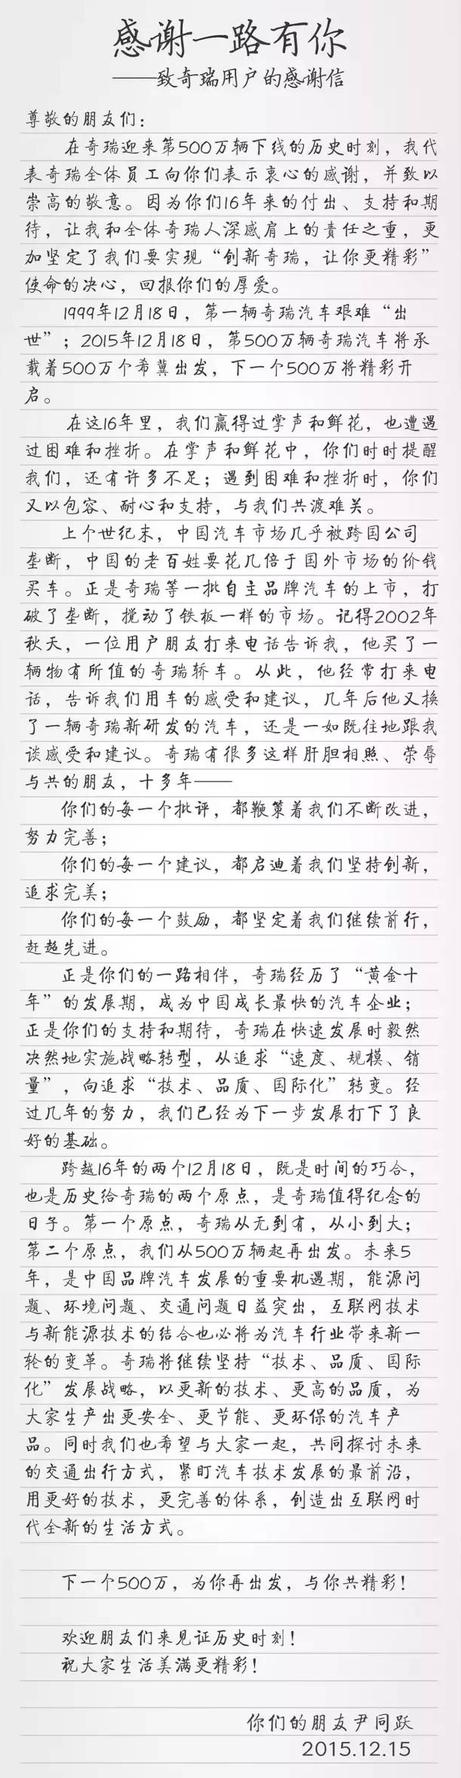 感谢一路有你
——致奇瑞用户的感谢信
尊敬的朋友们：
在奇瑞迎来第500万辆下线的历史时刻，我代
表奇瑞全体员工向你们表示衷心的感谢，并致以
崇高的敬意。因为你们16年来的付出、支持和期
待，让我和全体奇瑞人深感肩上的责任之重，更
加坚定了我们要实现“创新奇瑞，让你更精彩”
使命的决心，回报你们的厚爱。
1999年12月18日，第一辆奇瑞汽车艰难“出
世”；2015年12月18日，第500万辆奇瑞汽车将承
载着500万个希冀出发，下一个500万将精彩开
启。
在这16年里，我们赢得过掌声和鲜花，也遭遇
过困难和挫折。在掌声和鲜花中，你们时时提醒
我们，还有许多不足；遇到困难和挫折时，你们
又以包容、耐心和支持，与我们共渡难关。
上个世纪末，中国汽车市场几乎被跨国公司
垄断，中国的老百姓要花几倍于国外市场的价钱
买车。正是奇瑞等一批自主品牌汽车的上市，打
破了垄断，搅动了铁板一样的市场。记得2002年
秋天，一位用户朋友打来电话告诉我，他买了一
辆物有所值的奇瑞轿车。从此，他经常打来电
话，告诉我们用车的感受和建议，几年后他又换
了一辆奇瑞新研发的汽车，还是一如既往地跟我
谈感受和建议。奇瑞有很多这样肝胆相照、荣辱
与共的朋友，十多年——
你们的每一个批评，都鞭策着我们不断改进，
努力完善；
你们的每一个建议，都启迪着我们坚持创新，
追求完美；
你们的每一个鼓励，都坚定着我们继续前行，
赶超先进。
正是你们的一路相伴，奇瑞经历了“黄金十
年”的发展期，成为中国成长最快的汽车企业；
正是你们的支持和期待，奇瑞在快速发展时毅然
决然地实施战略转型，从追求“速度、规模、销
量”，向追求“技术、品质、国际化”转变。经
过几年的努力，我们已经为下一步发展打下了良
好的基础。
跨越16年的两个12月18日，既是时间的巧合，
也是历史给奇瑞的两个原点，是奇瑞值得纪念的
日子。第一个原点，奇瑞从无到有，从小到大；
第二个原点，我们从500万辆起再出发。未来5
年，是中国品牌汽车发展的重要机遇期，能源问
题、环境问题、交通问题日益突出，互联网技术
与新能源技术的结合也必将为汽车行业带来新一
轮的变革。奇瑞将继续坚持“技术、品质、国际
化”发展战略，以更新的技术、更高的品质，为
大家生产出更安全、更节能、更环保的汽车产
品。同时我们也希望与大家一起，共同探讨未来
的交通出行方式，紧盯汽车技术发展的最前沿，
用更好的技术，更完善的体系，创造出互联网时
代全新的生活方式。
下一个500万，为你再出发，与你共精彩！
欢迎朋友们来见证历史时刻！
祝大家生活美满更精彩！
你们的朋友尹同跃
2015.12.15